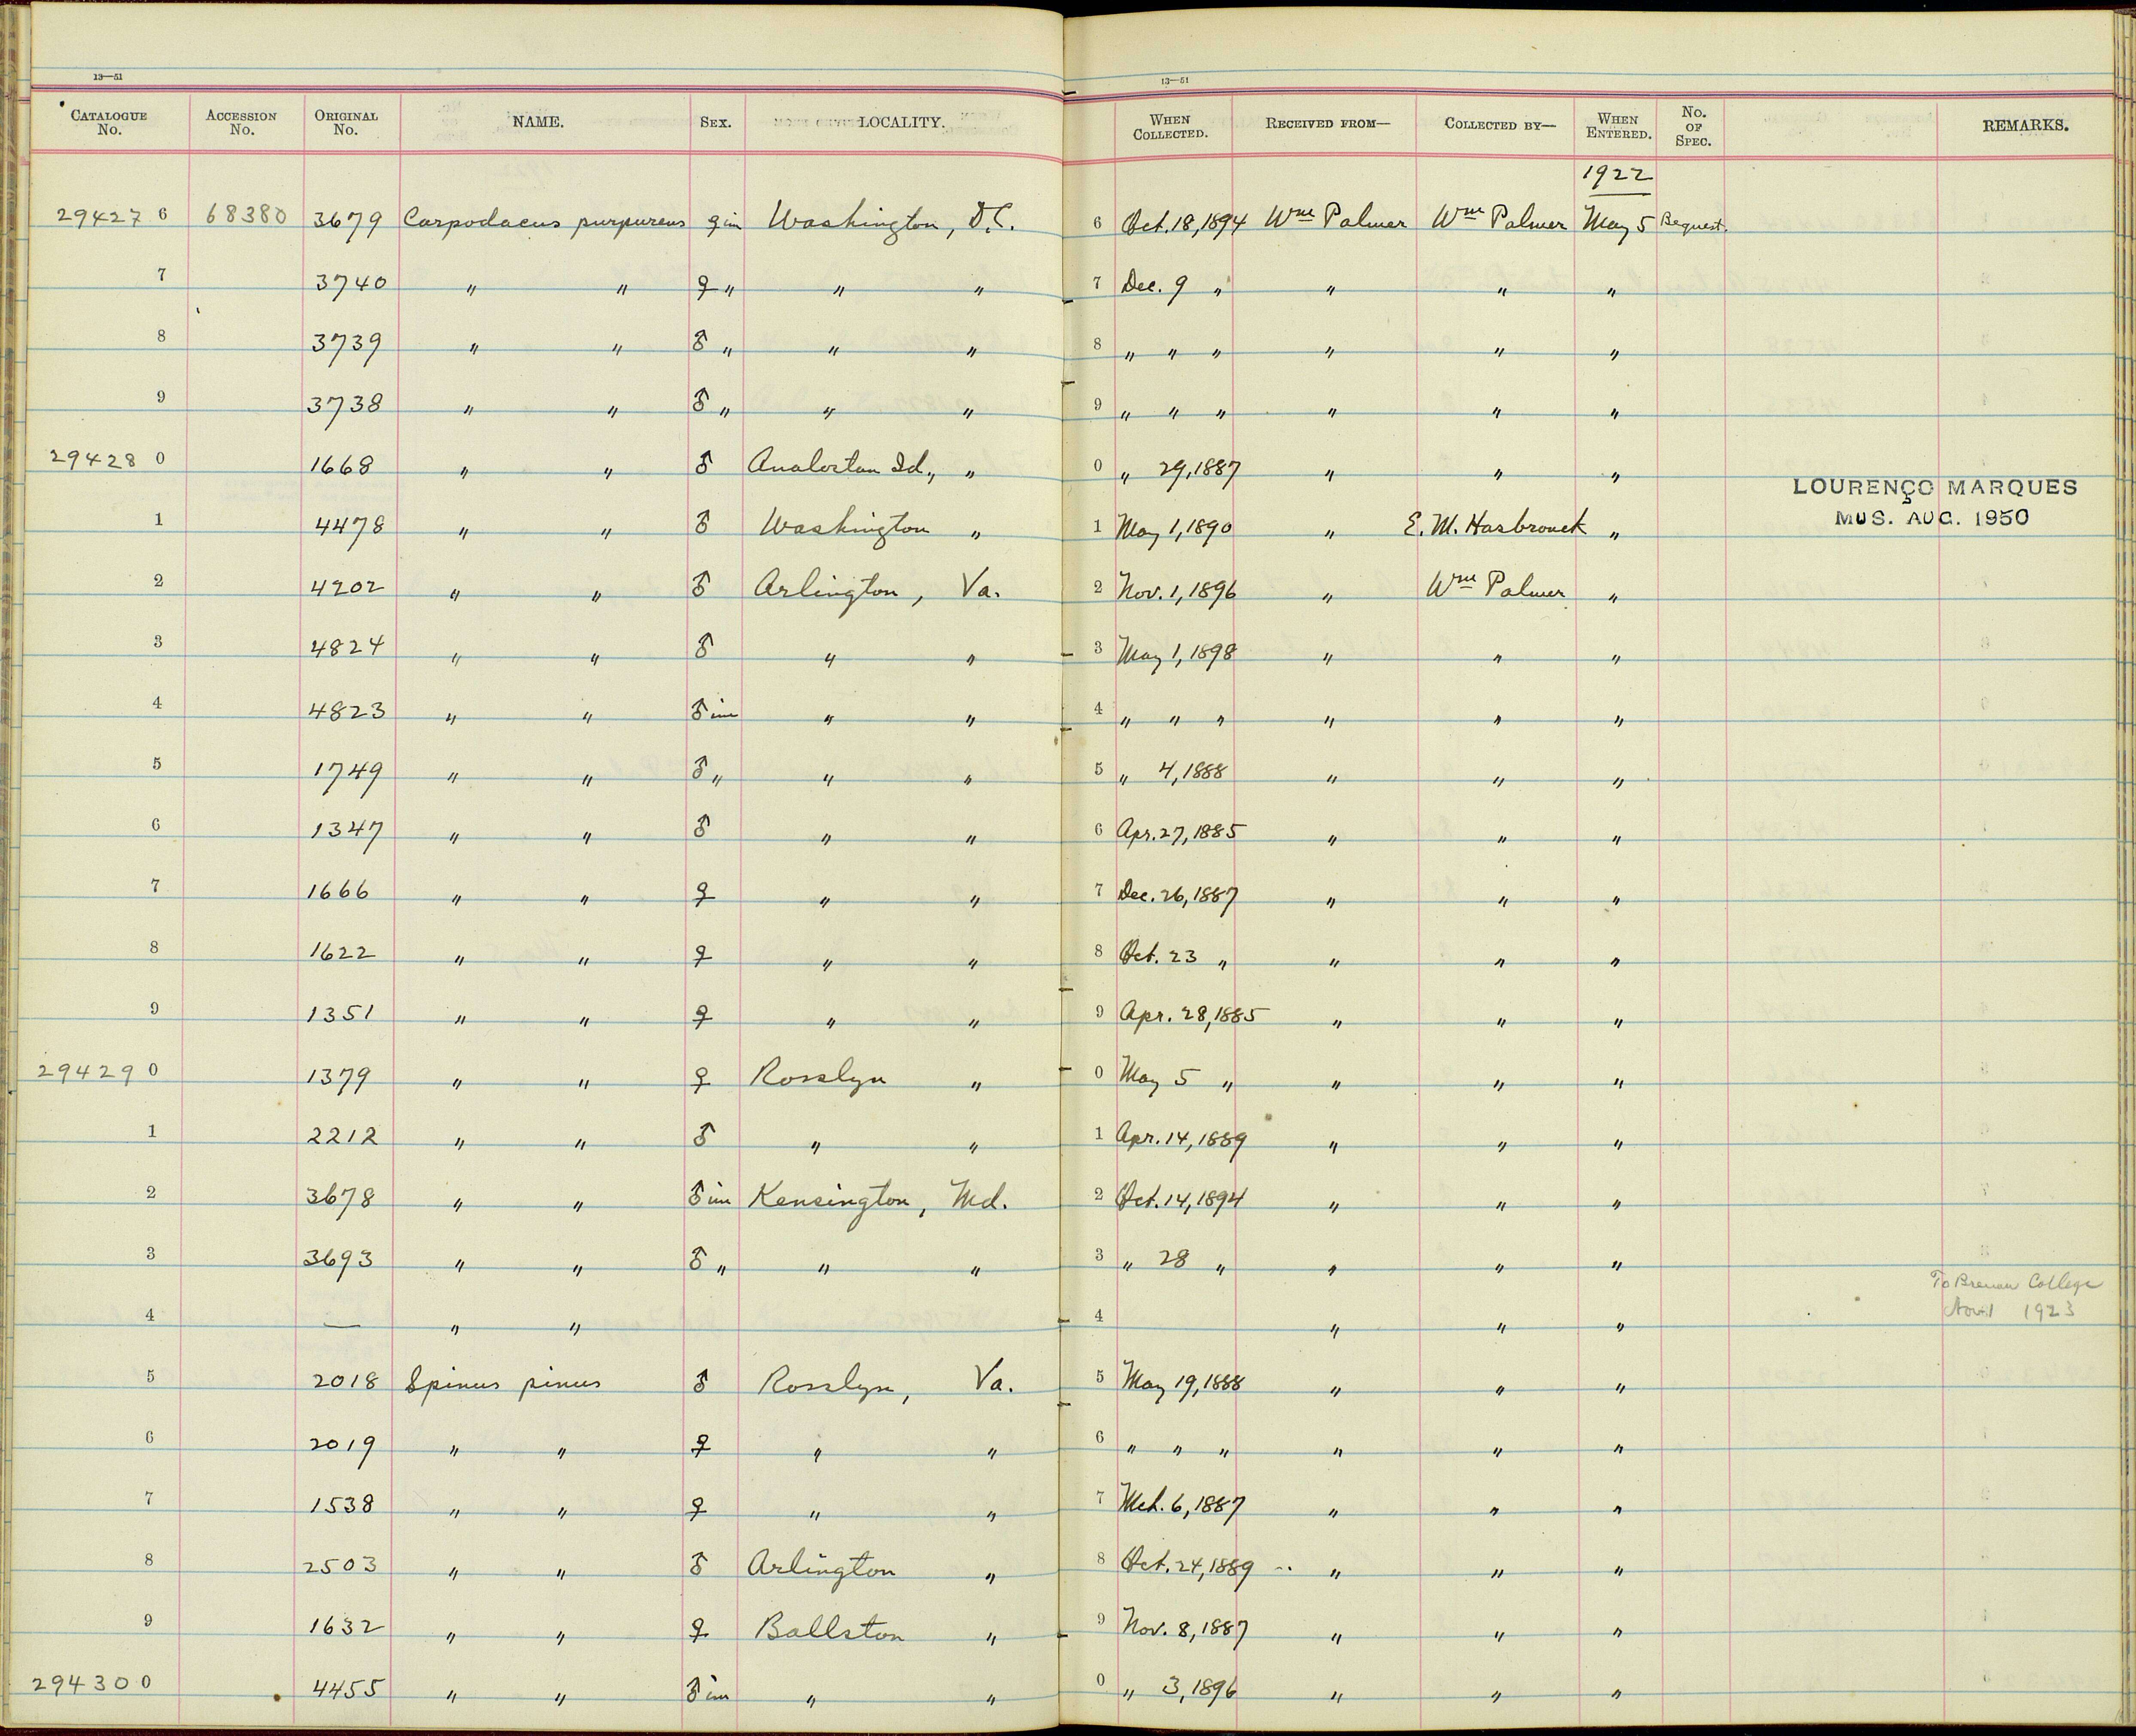 13—51 13—51
CATALOGUE No. ACCESSION No. ORIGINAL No. NAME. SEX. LOCALITY. WHEN COLLECTED. RECEIVED FROM— COLLECTED BY— WHEN ENTERED. No. OF SPEC. REMARKS.
1922
29427 6 68380 3679 Carpodacus purpureus ♀ im Washington, D.C. 6 Oct. 18, 1894 Wm Palmer Wm Palmer May 5 Bequest.
7 3740 " " ♀ " " " 7 Dec. 9 " " " "
8 3739 " " ♂ " " " 8 " " " " " "
9 3738 " " ♂ " " " 9 " " " " " "
29428 0 1668 " " ♂ Analostan Id., " 0 " 29, 1887 " " "
LOURENÇO MARQUES
MUS. AUG. 1950
1 4478 " " ♂ Washington " 1 May 1, 1890 " E. M. Hasbrouck "
2 4202 " " ♂ Arlington, Va. 2 Nov. 1, 1896 " Wm Palmer "
3 4824 " " ♂ " " 3 May 1, 1898 " " "
4 4823 " " ♂ im " " 4 " " " " " "
5 1749 " " ♂ " " " 5 " 4, 1888 " " "
6 1347 " " ♂ " " 6 Apr. 27, 1885 " " "
7 1666 " " ♀ " " 7 Dec. 26, 1887 " " "
8 1622 " " ♀ " " 8 Oct. 23 " " " "
9 1351 " " ♀ " " 9 Apr. 28, 1885 " " "
29429 0 1379 " " ♀ Rosslyn " 0 May 5 " " " "
1 2212 " " ♂ " " 1 Apr. 14, 1889 " " "
2 3678 " " ♂ im Kensington, Md. 2 Oct. 14, 1894 " " "
3 3693 " " ♂ " " " 3 " 28 " " " "
To Brenau College
Nov. 1 1923
4 — " " 4 " " "
5 2018 Spinus pinus ♂ Rosslyn, Va. 5 May 19, 1888 " " "
6 2019 " " ♀ " " 6 " " " " " "
7 1538 " " ♀ " " 7 Mch. 6, 1887 " " "
8 2503 " " ♂ Arlington " 8 Oct. 24, 1889 " " "
9 1632 " " ♀ Ballston " 9 Nov. 8, 1887 " " "
29430 0 4455 " " ♂ im " " 0 " 3, 1896 " " "